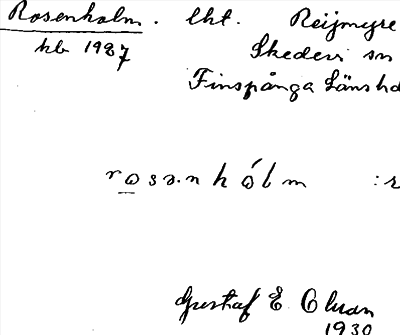 Rosenholm. lht. Reijmyre
kb 1987 Skedevi sn
Finspånga Länshd
rosə.nhólm :r
Gustaf E. Oluan
1930